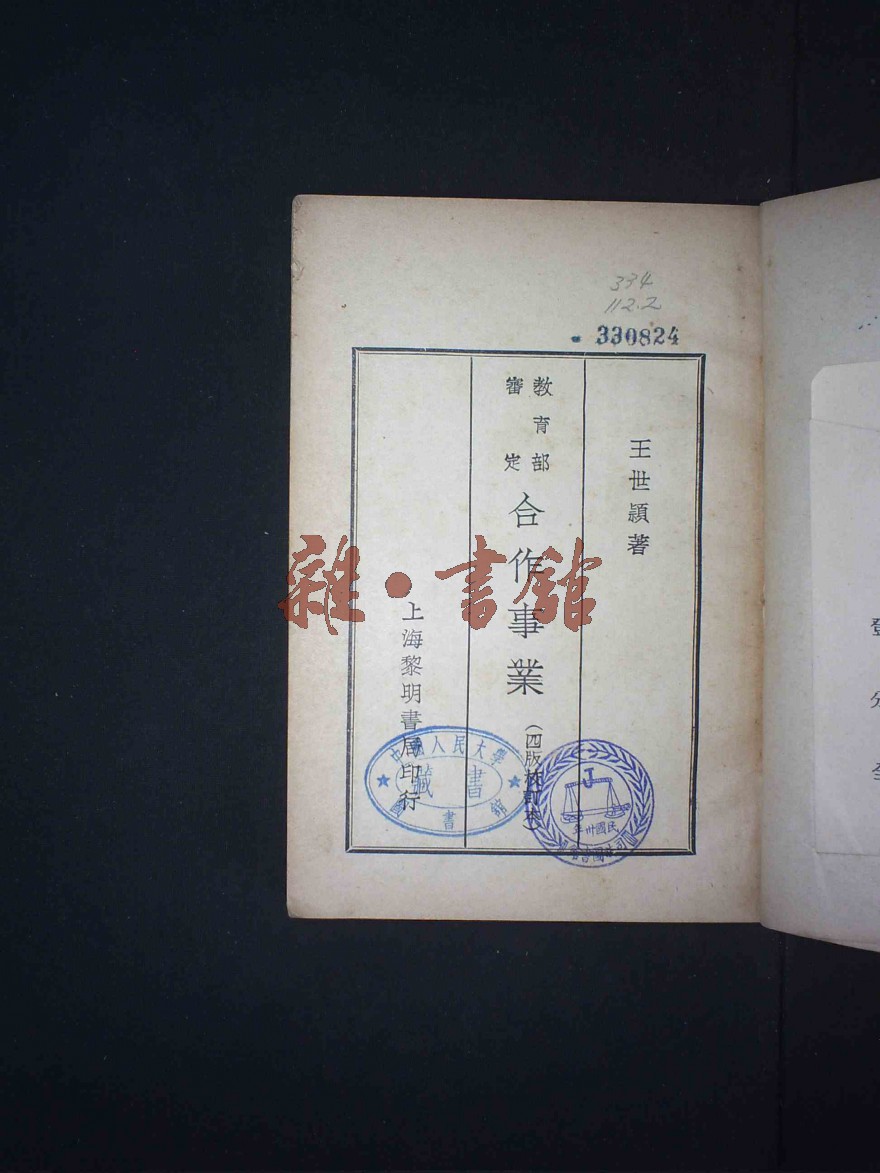 334
112.2
330824
王世頴著
教育部
審定
合作事業
(四版校訂本)
上海黎明書局印行
雜·書舘
中國人民大學
藏書
圖書館
民國卅年
登
分
全